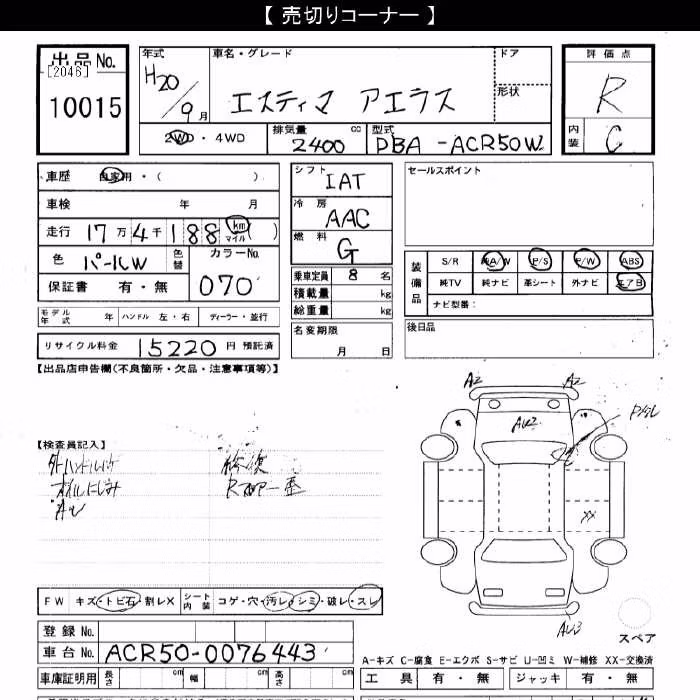 【 売切りコーナー 】
出品 No.
[2046]
10015
年式
H20/9月
車名・グレード
エスティマ アエラス
ドア
形状
2WD ・ 4WD
排気量 2400 cc
型式 DBA-ACR50W
評価点
R
内装 C
車歴 自家用 ・( )
車検 年 月
走行 17万4千188 km マイル
色 パールW 色替
カラーNo. 070
保証書 有・無
モデル年式 年 ハンドル 左・右 ディーラー・並行
リサイクル料金 15220 円 預託済
シフト IAT
冷房 AAC
燃料 G
乗車定員 8 名
積載量 kg
総重量 kg
名変期限
月 日
セールスポイント
装備品
S/R 純A/W P/S P/W ABS
純TV 純ナビ 革シート 外ナビ エアB
ナビ型番:
後日品
【出品店申告欄(不良箇所・欠品・注意事項等)】
【検査員記入】
オイルにじみ
修復
A2 A2
AU2
XX
AU3
スペア
FW キズ・トビ石・割レX シート内装 コゲ・穴・汚レ・シミ・破レ・スレ
登録 No.
車台 No. ACR50-0076443
車庫証明用 長さ cm 幅 cm 高さ cm
A-キズ C-腐食 E-エクボ S-サビ U-凹ミ W-補修 XX-交換済
工具 有・無 ジャッキ 有・無